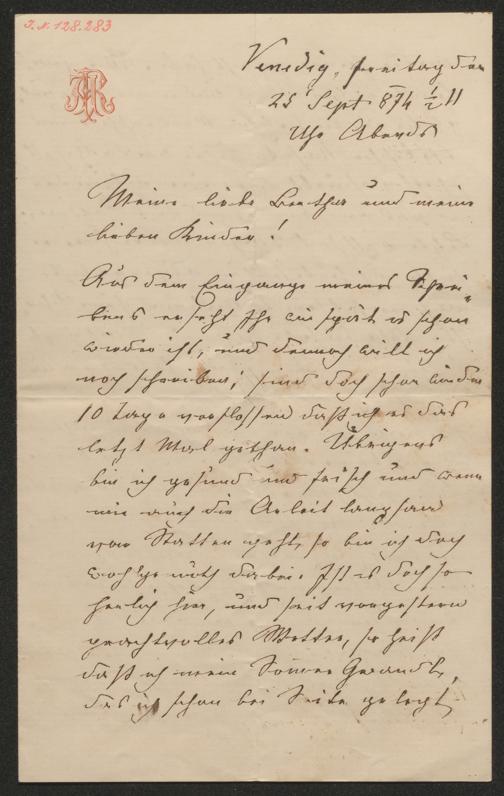 J.N. 128.283
Venedig, freitag den
25 Sept 874 ½ 11
Uhr Abends
Meine liebe Bertha und meine
lieben Kinder!
Aus dem Eingange meines Schrei-
bens erseht Ihr wie spät es schon
wieder ist, und dennoch will ich
noch schreiben; sind doch schon wieder
10 Tage verflossen daß ich es das
letzt Mal gethan. Übrigens
bin ich gesund und frisch und wenn
mir auch die Arbeit langsam
von Statten geht, so bin ich doch
wohlgemuth dabei. Ist es doch so
herlich hier, und seit vorgestern
prachtvolles Wetter, so heiß
daß ich mein Sommer Gewandl,
das ich schon bei Seite gelegt,